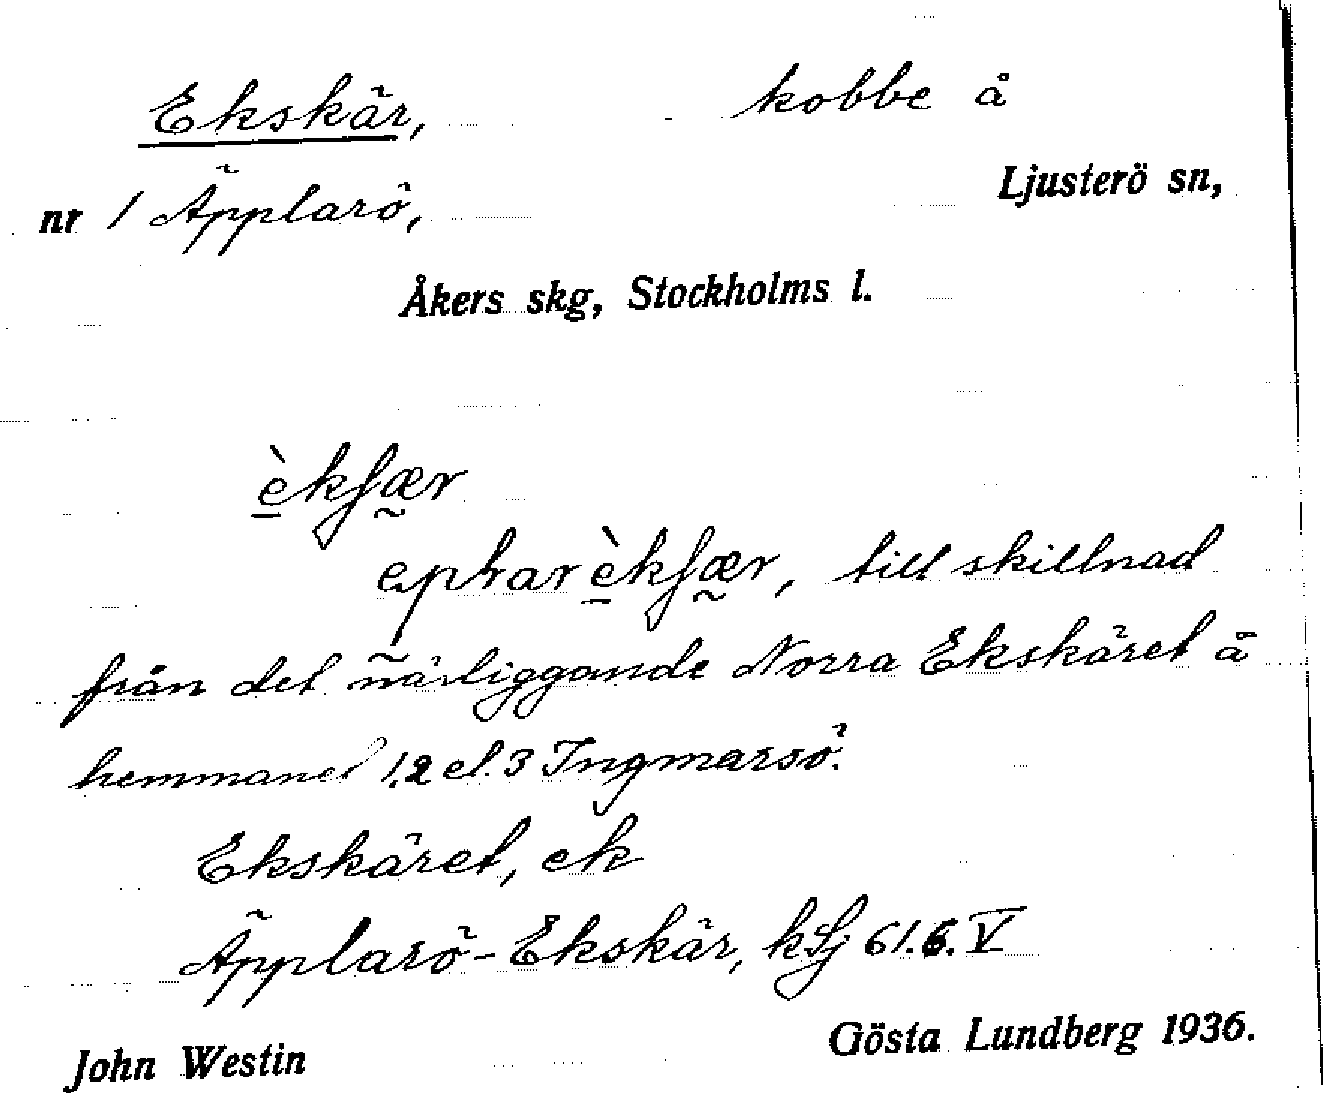 Ekskär, kobbe å
Ljusterö sn,
nr 1 Äpplarö,
Åkers skg, Stockholms l.
èkʃær
eplarèkʃær, till skillnad
från det närliggande Norra Ekskäret å
hemmanet 1,2 el. 3 Ingmarsö.
Ekskäret, ek
Äpplarö-Ekskär, kSj 61.6.V
John Westin Gösta Lundberg 1936.